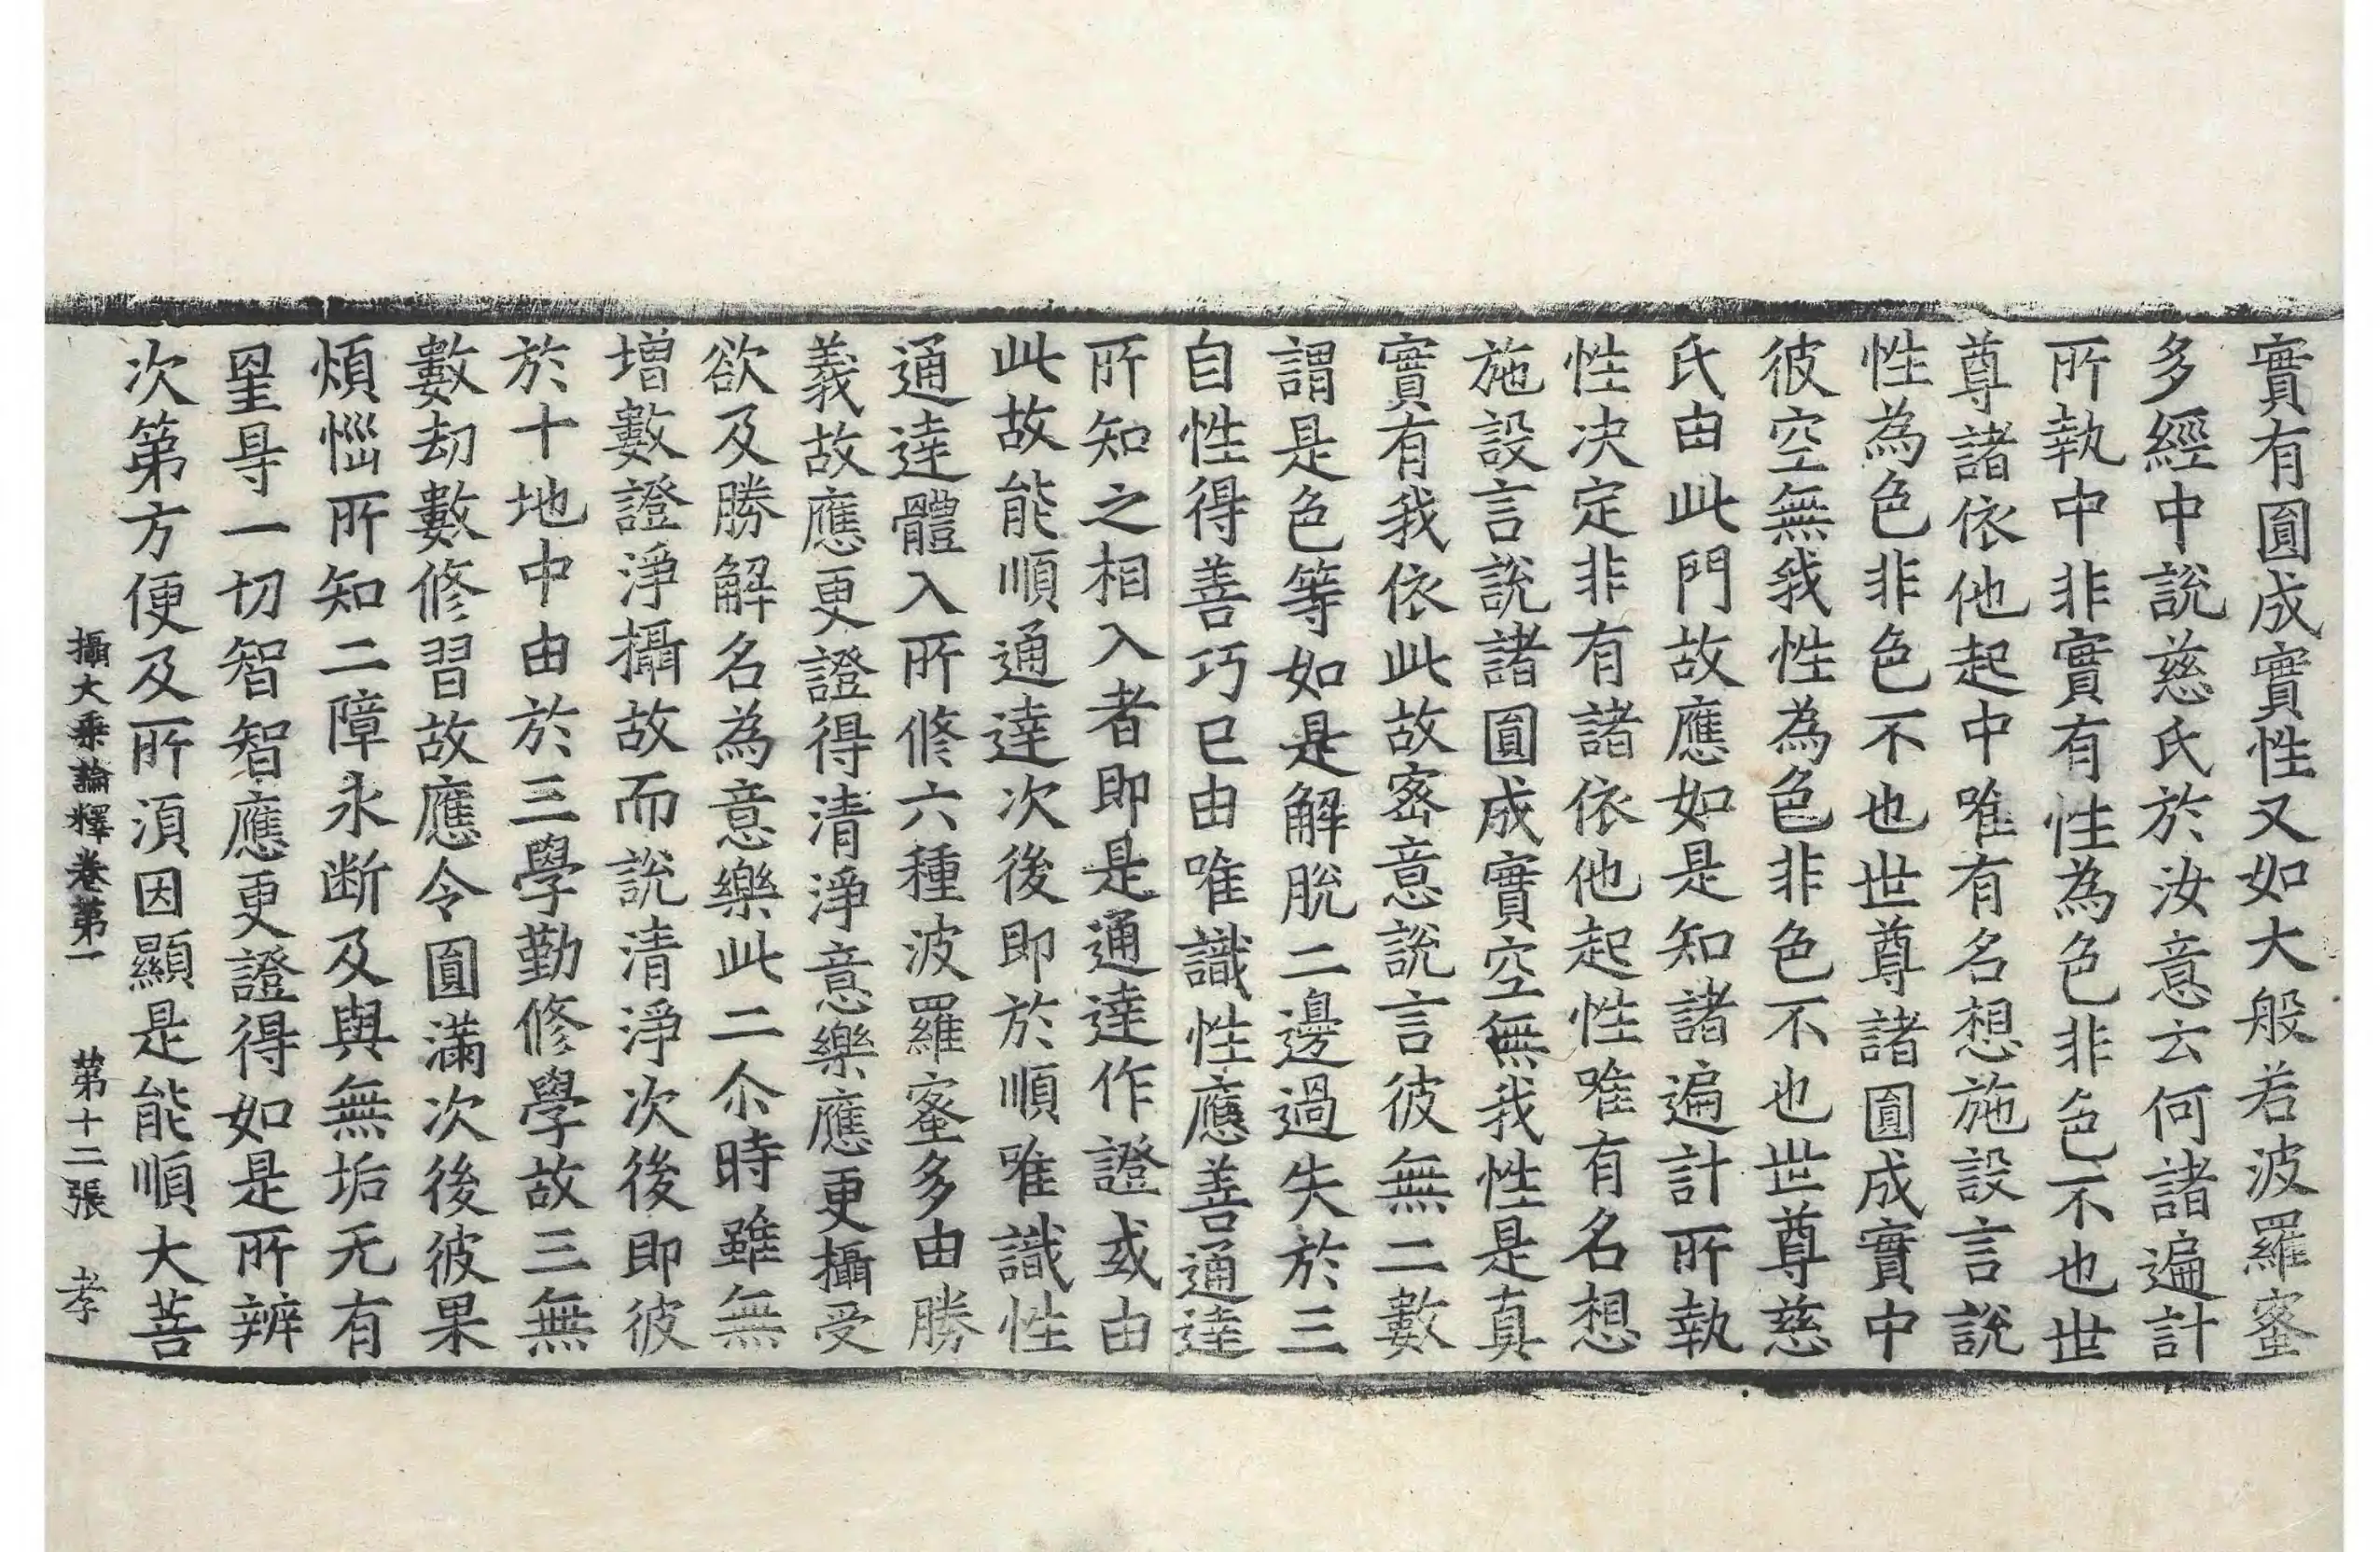 實有圎成實性又如大般若波羅蜜
多經中說慈氏於汝意云何諸遍計
所執中非實有性為色非色不也世
尊諸依他起中唯有名想施設言說
性為色非色不也世尊諸圎成實中
彼空無我性為色非色不也世尊慈
氏由此門故應如是知諸遍計所執
性决定非有諸依他起性唯有名想
施設言說諸圎成實空無我性是真
實有我依此故宻意說言彼無二數
謂是色等如是解脫二邊過失於三
自性得善巧已由唯識性應善通達
所知之相入者即是通達作證或由
此故能順通達次後即於順唯識性
通達體入所修六種波羅蜜多由勝
義故應更證得清淨意樂應更攝受
欲及勝解名為意樂此二尒時雖無
增數證淨攝故而說清淨次後即彼
於十地中由於三學勤修學故三無
數劫數修習故應令圎滿次後彼果
煩惱所知二障永断及與無垢无有
罣㝵一切智智應更證得如是所辨
次第方便及所湏因顯是能順大菩
攝大乘論釋卷第一　第十二張　孝